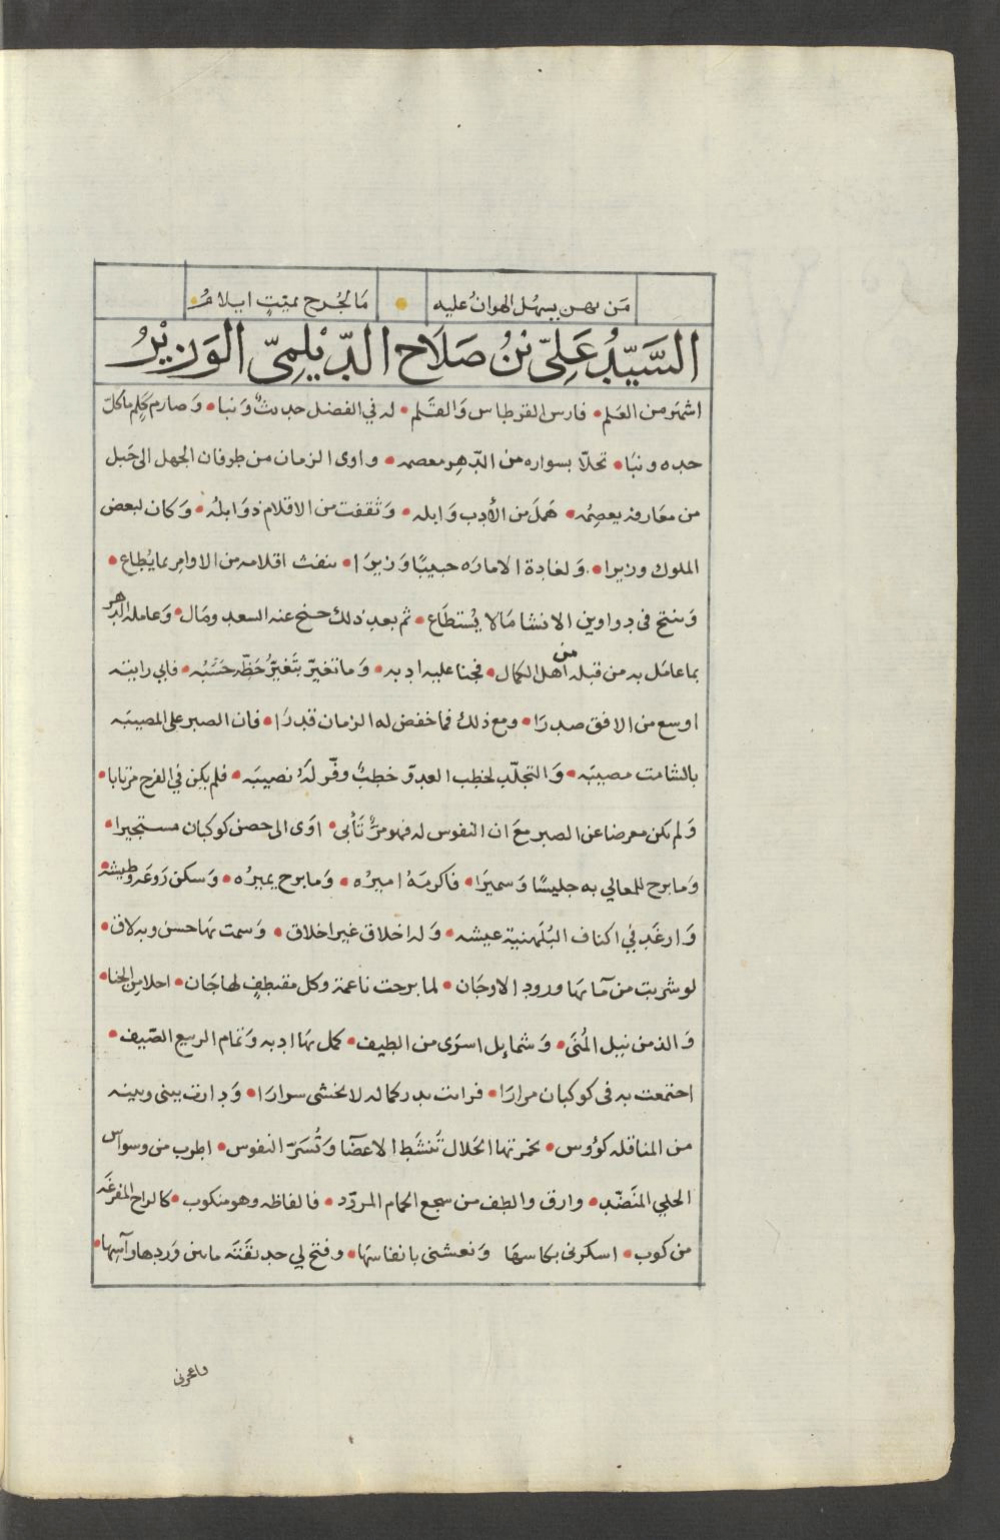 مَن يهن يسهُل الهوانُ عليه • مَا لجُرح بميّتٍ ايلامُ •
السَّيّدُ عَلِيّ بْنُ صَلَاح الدّيْلَمِيّ الوَزِيْرُ
اشهَر من العَلم • فارس القرطاس وَالقَلم • له في الفضل حديثٌ وَنبا • وَصارم كَلِم ما كلّ
حده ونبَا • تحلّا بسواره من الدّهر معصمه • واوى الزمان من طوفان الجهل الى جَبل
من معَارفه يعصِمُه • هَملَ من الأدب وَابله • وَثقفت من الاقلام ذوَابلهُ • وَكان لبعض
الملوك وزيرا • وَلغادة الامارَه حبيبًا وَزيرَا • ينفث اقلامه من الاوامِر بما يُطاع •
وَينتج في دواوين الانشا مَالا يُستطَاع • ثم بعد ذلك جنح عنه السعد ومَال • وَعامله الدهر
بما عامَل به من قبله من اهل الكمال • فجنا عليه ادبه • وَما تغيّر بتَغيّرُ حَظّه حَسَبُه • فاني رايته
اوسع من الافق صدرَا • ومع ذلك فما خفض له الزمان قدرَا • فان الصبر على المصيبَه
بالشامت مصيبَه • وَالتجلّد لخطب العدوّ خطبٌ وفّر لهُ نصيبَه • فلم يكن في الفرح مرتابا •
وَلم يكن معرضا عن الصبر معَ ان النفوس له فهو مرٌّ تَأبى • اوَى الى حصن كوكبان مستجيرا •
وَما برح للمعالي به جليسًا وَسميرَا • فاكرمَهُ اميرُه • وَما برح يميرُه • وَسكن رَوعَه وطيشه •
وَارغَد في اكناف البُلَهنية عيشه • وَله اخلاق غير اخلاق • وَسمت بها حسن وبه لاق •
لو شربت من مآئها ورود الاوجَان • لما برحت ناعمة وكل مقتطفٍ لها جَان • احلا من الجنا •
وَالذ من نيل المُنَى • وَشمايل اسرَى من الطيف • كمل بها ادبه وَتمام الربيع الصّيف •
اجتمعت به في كوكبان مرارَا • فرايت بدر كماله لا يخشى سرارَا • وَدارت بيني وبينه
من المناقله كؤوس • بخمرتها الحَلال تَنشَط الاعضَا وَتُسَرّ النفوس • اطرب من وسواس
الحلي المنَضّد • وارق والطف من سجع الحَمام المردّد • فالفاظه وهو منكوب • كالراح المفرغَه
من كوب • اسكرني بكاسهَا وَنعشني بانفاسهَا • وفتح لي حديقَتَه ما بين وَردها وآسِها •